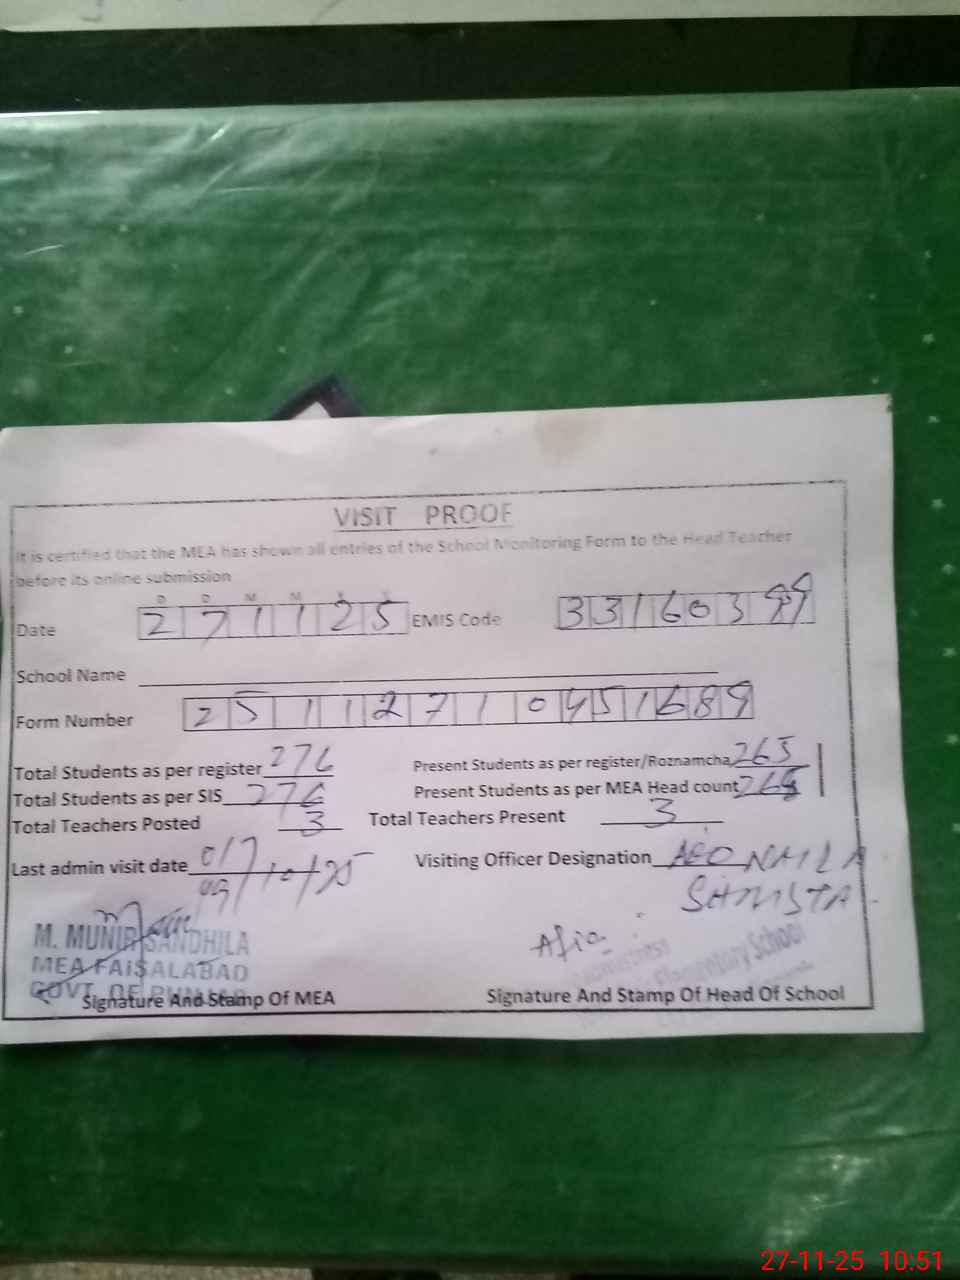 VISIT PROOF
It is certified that the MEA has shown all entries of the School Monitoring Form to the Head Teacher
before its online submission
D D M M Y Y
Date 2 7 1 1 2 5 EMIS Code 3 3 1 6 0 3 9 9
School Name
Form Number 2 5 1 1 2 7 1 0 4 5 1 6 8 9
Total Students as per register 276 Present Students as per register/Roznamcha 265
Total Students as per SIS 276 Present Students as per MEA Head count
Total Teachers Posted 3 Total Teachers Present 3
Last admin visit date /10/25 Visiting Officer Designation AEO NAILA
SHAISTA
M. MUNIR SANDHILA Afia
MEA FAISALABAD Elementary School
GOVT. OF PUNJAB
Signature And Stamp Of MEA Signature And Stamp Of Head Of School
27-11-25 10:51